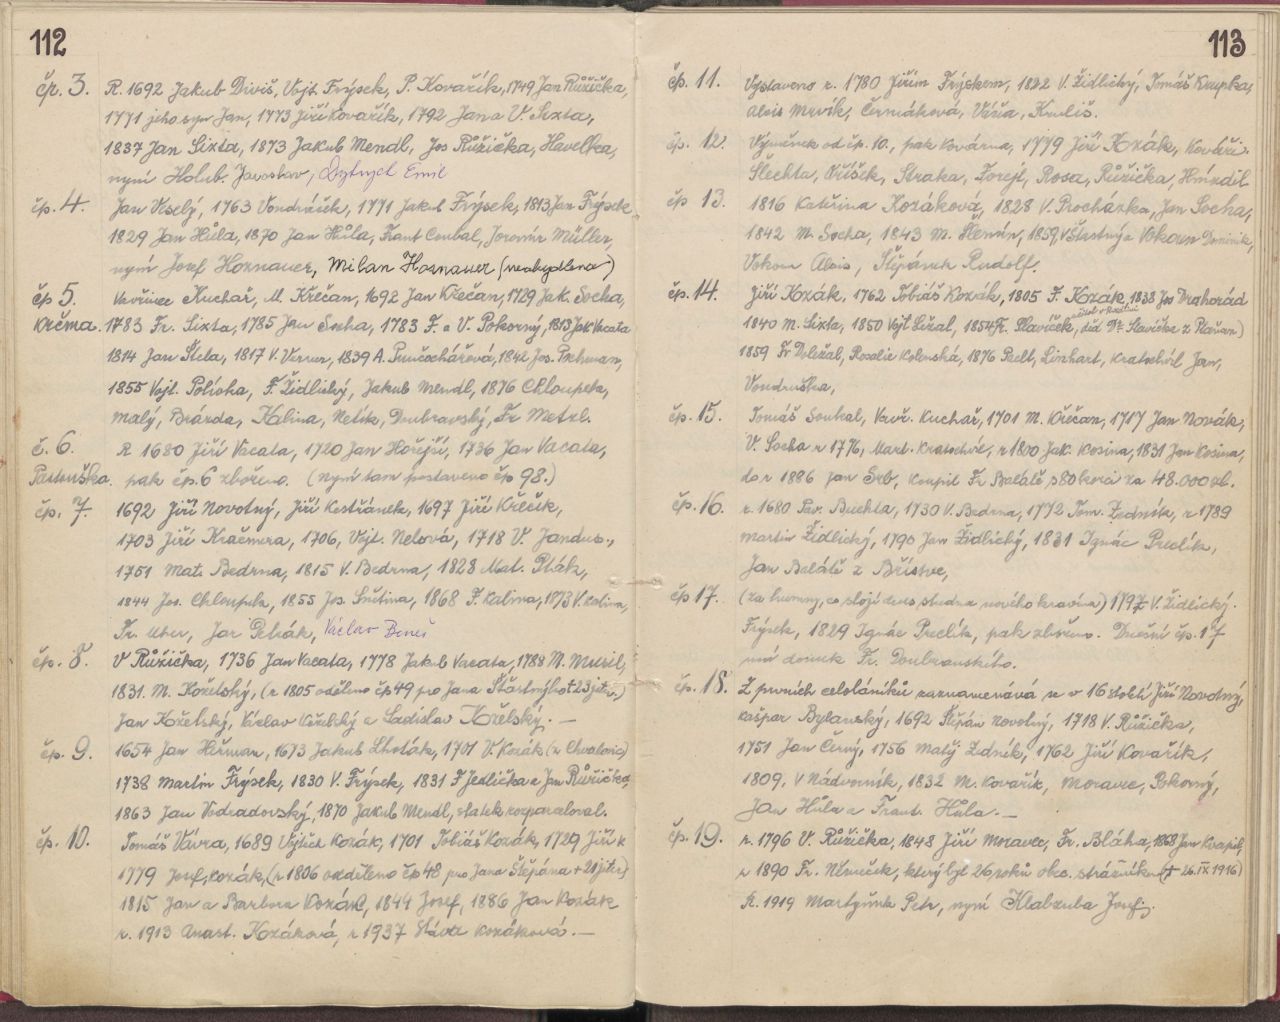 112
čp. 3. R. 1692 Jakub Diviš, Vojt. Frýsek, P. Kovařík, 1749 Jan Růžička,
1771 jeho syn Jan, 1773 Jiří Kovařík, 1792 Jan a V. Sixta,
1837 Jan Sixta, 1873 Jakub Mendl, Jos Růžička, Havelka,
nyní Holub Jaroslav, Dytrych Emil
čp. 4. Jan Veselý, 1763 Vondráček, 1771 Jakub Frýsek, 1813 Jan Frýsek
1829 Jan Hůla, 1870 Jan Hůla, Frant Coubal, Jaromír Müller,
nyní Josef Hoznauer, Milan Hoznauer (neobydlena)
čp 5. Vavřinec Kuchař, M. Křečan, 1692 Jan Křečan, 1729 Jak. Socha,
Krčma. 1783 Fr. Sixta, 1785 Jan Socha, 1783 F. a V. Pokorný, 1813 Jak Vacata
1814 Jan Štela, 1817 V. Verner, 1839 A. Punčochářová, 1842 Jos. Pachman,
1855 Vojt. Polívka, F. Židlický, Jakub Mendl, 1876 Chloupek,
Malý, Brázda, Kalina, Netík, Doubravský, Fr Metzl.
č. 6. R 1680 Jiří Vacata, 1720 Jan Hořejší, 1736 Jan Vacata,
Pastuška. pak čp. 6 zbořeno. (nyní tam postaveno čp 98.)
čp. 7. 1692 Jiří Novotný, Jiří Kestřánek, 1697 Jiří Křečík,
1703 Jiří Kračmera, 1706, Vojt. Nelová, 1718 V. Jandus.,
1751 Mat. Bedrna, 1815 V. Bedrna, 1828 Mat. Pták,
1844 Jos. Chloupek, 1855 Jos. Snětina, 1868 F. Kalina, 1873 V. Kalina,
Fr. Uher, Jar Petrák, Václav Beneš
čp. 8. V Růžička, 1736 Jan Vacata, 1778 Jakub Vacata, 1788 M. Musil,
1831. M. Koželský, (r 1805 odděleno čp 49 pro Jana Šťastnýho + 23 jiter.)
Jan Koželský, Václav Koželský a Ladislav Koželský. —
čp. 9. 1654 Jan Heřman, 1673 Jakub Lhoták, 1701 V. Kozák (z Chvalovic)
1738 Martin Frýsek, 1830 V. Frýsek, 1831 F Jedlička a Jan Růžička,
1863 Jan Vodradovský, 1870 Jakub Mendl, statek rozparceloval.
čp. 10. Tomáš Vávra, 1689 Vojtěch Kozák, 1701 Tobiáš Kozák, 1729 Jiří K
1779 Josef, Kozák, (r 1806 odděleno čp 48 pro Jana Štěpána + 21 jiter)
1815 Jan a Barbora Kozák, 1844 Josef, 1886 Jan Kozák
r. 1913 Anast. Kozáková, r 1937 Sláva Kozáková. —
113
čp. 11. Vystaveno r. 1780 Jiřím Frýskem, 1822 V. Židlický, Tomáš Krupka,
Alois Mrvík, Čermáková, Váša, Kuliš.
čp. 12. Výměnek od čp. 10., pak kovárna, 1779 Jiří Kozák, kováři.
Šlechta, Straka, Zorejl, Rosa, Růžička, Hnízdil
čp 13. 1816 Kateřina Kozáková, 1828 V. Procházka, Jan Socha,
1842 M. Socha, 1843 M. 1859 V Šťastný a Vokoun Dominik,
Vokoun Alois, Štěpánek Rudolf.
čp. 14. Jiří Kozák, 1762 Tobiáš Kozák, 1805 F. Kozák, 1838 Jos Drahorád
1840 M. Sixta, 1850 Vojt Ležal, 1854 Fr. Slavíček, děd Dr. Slavíčka z Plaňan)
1859 Fr Doležal, Rosalie Kolenská, 1876 Pselt, Linhart, Kratochvíl Jan,
Vondruška,
čp. 15. Tomáš Soukal, Vavř. Kuchař, 1701 M. Křečan, 1717 Jan Novák,
V. Socha r 1776, Mart. Kratochvíl, r 1800 Jak. Kosina, 1831 Jan Kosina,
do r 1886 Jan Srb, koupil Fr Balátě s 80 korci za 48.000 zl.
čp. 16. r. 1680 Pav. Buchta, 1730 V. Bedrna, 1772 Tom. Zedník, r 1789
Martin Židlický, 1790 Jan Židlický, 1831 Ignác Preclík,
Jan Balátě z Bříství,
čp 17. (za humny, co stojí dnes studna nového kravína) 1797 V. Židlický.
Frýsek, 1829 Ignác Preclík, pak zbořeno. Dnešní čp. 17
má domek Fr. Doubravského.
čp. 18. Z prvních celoláníků zaznamenává se v 16 století Jiří Novotný,
Kašpar Bylanský, 1692 Štěpán Novotný, 1718 V. Růžička,
1751 Jan Černý, 1756 Matěj Zedník, 1762 Jiří Kovařík,
1809. V Nádvorník, 1832 M. Kovařík, Moravec, Pokorný,
Jan Hůla a Frant. Hůla. —
čp. 19. r. 1796 V. Růžička, 1848 Jiří Moravec, Fr. Bláha, 1868 Jan Kvapil,
r 1890 Fr. Němeček, který byl 26 roků obec. strážníkem († 26. IX 1916)
R. 1919 Martyínek Petr, nyní Klabzuba Josef.